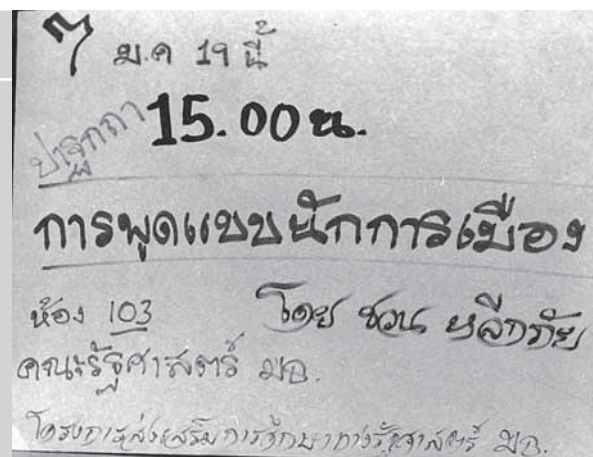 ๆ ม.ค 19 นี้
ปาฐกถา 15.00 น.
การพูดแบบนักการเมือง
ห้อง 103 โดย ชวน หลีกภัย
คณะรัฐศาสตร์ มธ.
โครงการส่งเสริมการศึกษาทางรัฐศาสตร์ มธ.